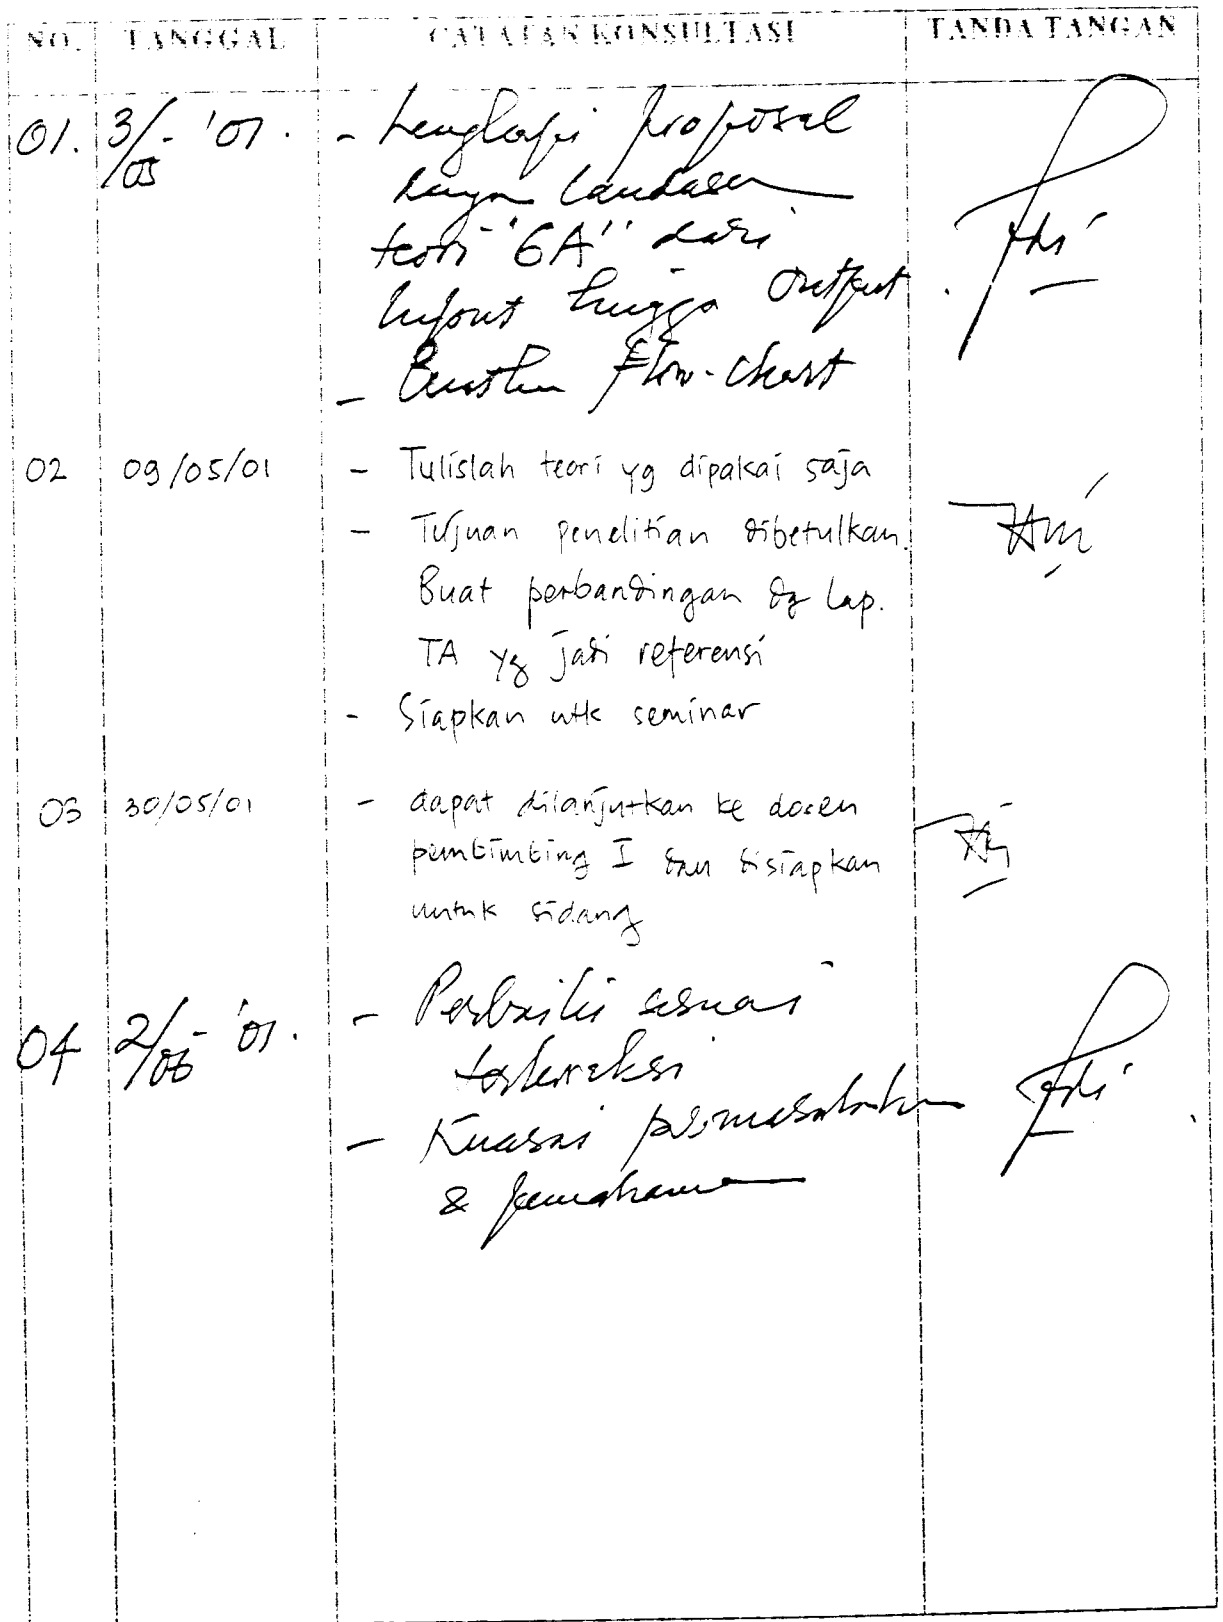 NO. TANGGAL CATATAN KONSULTASI TANDA TANGAN
01. 3/05- '01. - Lengkapi proposal
dengan landasan
teori "GA" dari
input hingga output.
- Buatkan Flow-chart
02 09/05/01 - Tulislah teori yg dipakai saja
- Tujuan penelitian dibetulkan.
Buat perbandingan dg lap.
TA yg jadi referensi
- Siapkan utk seminar
03 30/05/01 - dapat dilanjutkan ke dosen
pembimbing I dan disiapkan
untuk sidang
04 2/06- '01. - Perbaiki sesuai
terkoreksi
- Kuasai permasalahan
& pemahaman